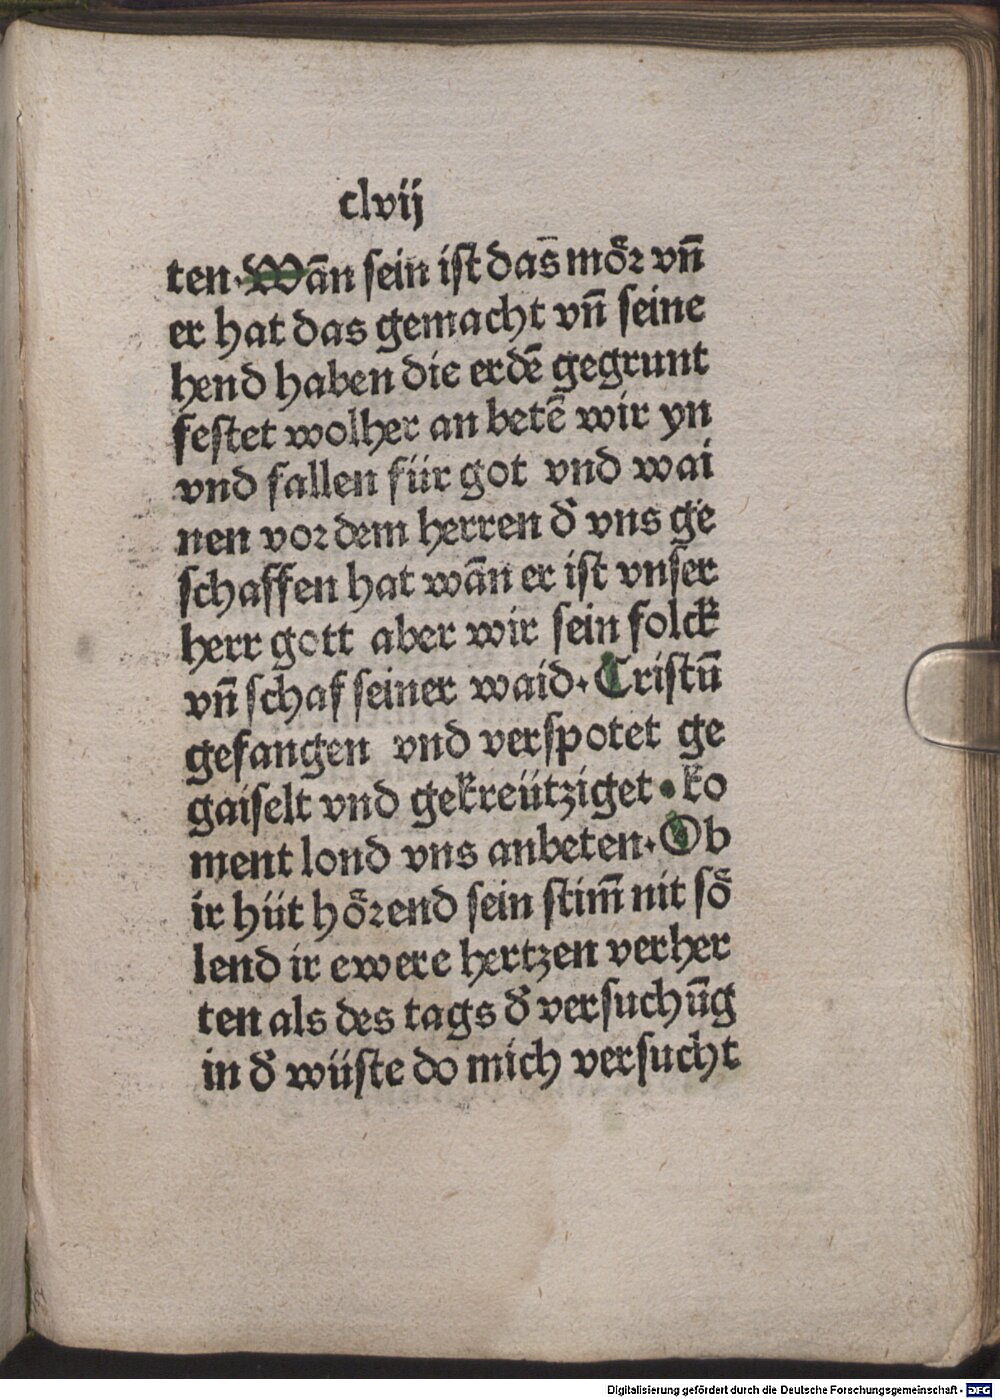 clvij
ten·Wān sein ist das̄ moͤꝛ vn̄
er hat das gemacht vn̄ seine
hend haben die erdē gegrunt
festet wolher an betē wir yn
vnd fallen für got vnd wai
nen voꝛ dem herren d̄ vns ge
schaffen hat wān er ist vnser
herr gott aber wir sein folck
vn̄ schaf seiner waid·Cristū
gefangen vnd verspotet ge
gaiselt vnd gekreütziget·ko
ment lond vns anbeten·Ob
ir hüt hoͤꝛend sein stim̄ nit soͤ
lend ir ewere hertzen verher
ten als des tags d̄ versuchūg
in d̄ wüste do mich versucht
Digitalisierung gefördert durch die Deutsche Forschungsgemeinschaft - DFG